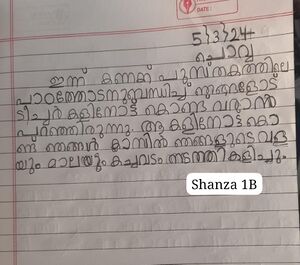 DATE:
5/3/24
ചൊവ്വ
ഇന്ന് കണക്ക് പുസ്തകത്തിലെ
പാഠത്തോടനുബന്ധിച്ച് ഞങ്ങളോട്
ടീച്ചർ കളിനോട്ട് കൊണ്ട് വരാൻ
പറഞ്ഞിരുന്നു. ആ കളിനോട്ട് കൊ
ണ്ട് ഞങ്ങൾ ക്ലാസിൽ ഞങ്ങളുടെ വള
യും മാലയും കച്ചവടം നടത്തി കളിച്ചു.
Shanza 1B